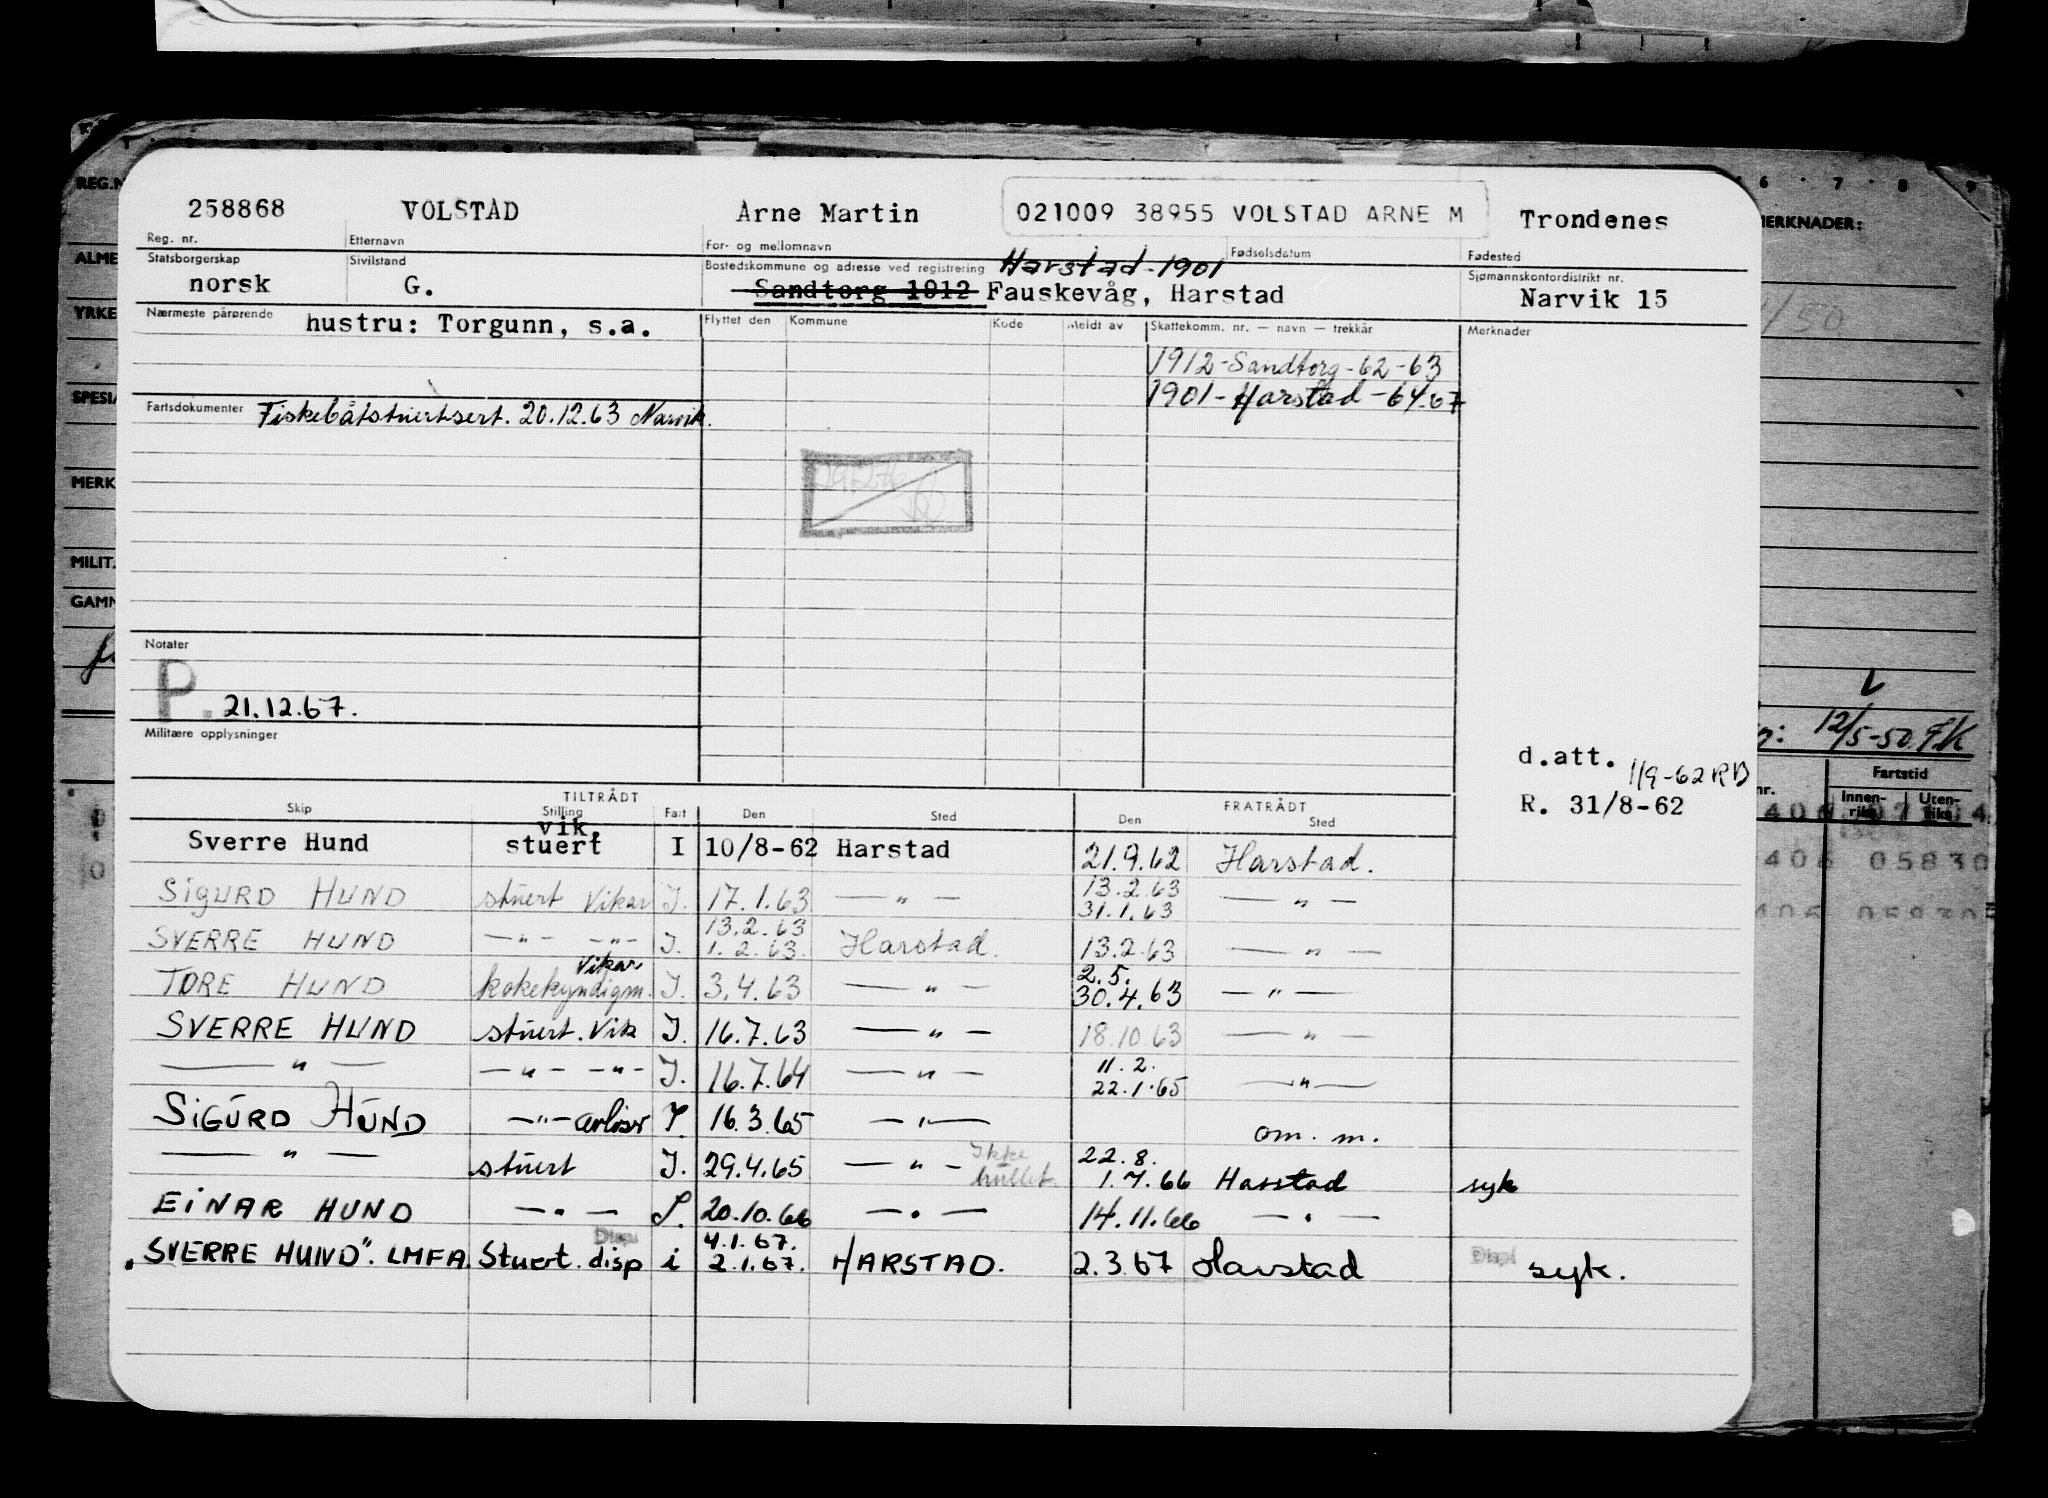 258868 VOLSTAD Arne Martin 021009 38955 VOLSTAD ARNE M Trondenes
Reg. nr. Etternavn For- og mellomnavn Fødselsdatum Fødested
Statsborgerskap Sivilstand Bostedskommune og adresse ved registrering Harstad-1901 Sjømannskontordistrikt nr.
norsk G. Sandtorg 1912 Fauskevåg, Harstad Narvik 15
Nærmeste pårørende hustru: Torgunn, s.a. Flyttet den Kommune Kode Meldt av Skattekomm. nr. — navn — trekkår Merknader
1912-Sandtorg-62-63
1901-Harstad-64-67
Fartsdokumenter Fiskebåtstuertsert. 20.12.63 Narvik.
Notater
P. 21.12.67.
Militære opplysninger
d.att. 1/9-62 RB
R. 31/8-62
TILTRÅDT FRATRÅDT
Skip Stilling Fart Den Sted Den Sted
vik.
Sverre Hund stuert I 10/8-62 Harstad 21.9.62 Harstad.
13.2.63
SIGURD HUND stuert Vikar I. 17.1.63 — " — 31.1.63 — " —
13.2.63
SVERRE HUND — " — — " — I. 1.2.63. Harstad. 13.2.63 — " —
Vikar 2.5.
TORE HUND kokekyndigm. I. 3.4.63 — " — 30.4.63 — " —
SVERRE HUND stuert. Vik I. 16.7.63 — " — 18.10.63 — " —
11.2.
— " — — " — — " — I. 16.7.64 — " — 22.1.65 — " —
SIGURD HUND — " — avløser I. 16.3.65 — " — om. m.
Ikke 22.8.
— " — stuert I. 29.4.65 — " — hullet. 1.7.66 Harstad syk
EINAR HUND — " — I. 20.10.66 — " — 14.11.66 — " —
Disp 4.1.67.
"SVERRE HUND". LMFA. Stuert. disp i 2.1.67. HARSTAD. 2.3.67 Harstad Disp syk.
REG.N
ALME
YRKE
SPESIA
MERK
MILIT.
GAMN
6 7 8 9
MERKNADER:
/50
12/5-50
nr. Fartstid
Innenriks Utenriks
406 05830